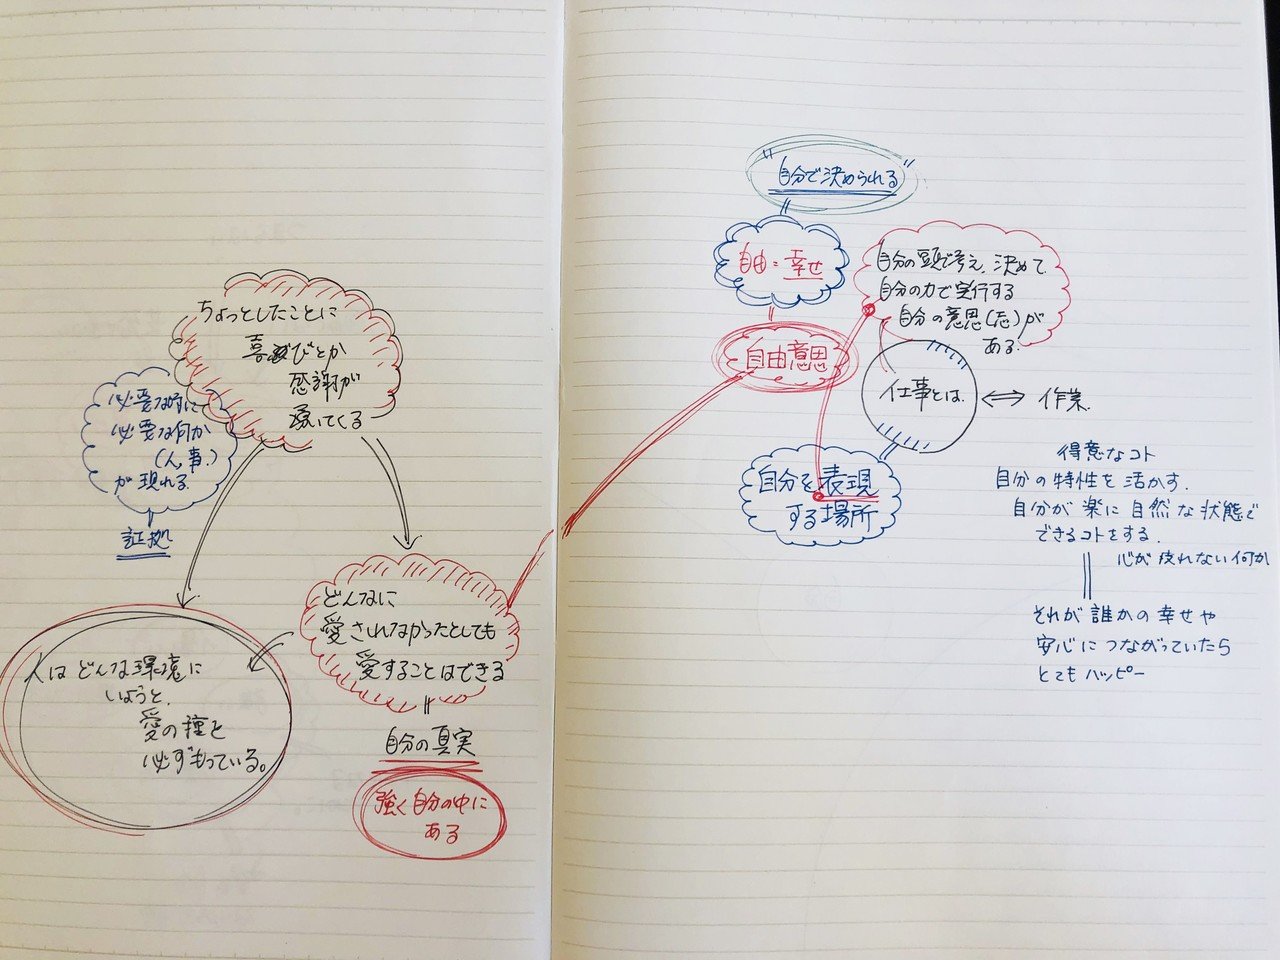 ちょっとしたことに
喜びとか
感謝が
湧いてくる
必要な時に
必要な何か
(人,事.)
が現れる
証拠
人はどんな環境に
いようと、
愛の種を
必ずもっている。
どんなに
愛されなかったとしても
愛することはできる
自分の真実
強く自分の中に
ある
"自分で決められる"
自由=幸せ
自由意思
自分の頭で考え、決めて
自分の力で実行する
自分の意思(志)が
ある.
仕事とは
作業.
自分を表現
する場所
得意なコト
自分の特性を活かす.
自分が楽に自然な状態で
できるコトをする.
心が疲れない何か
それが誰かの幸せや
安心につながっていたら
とてもハッピー